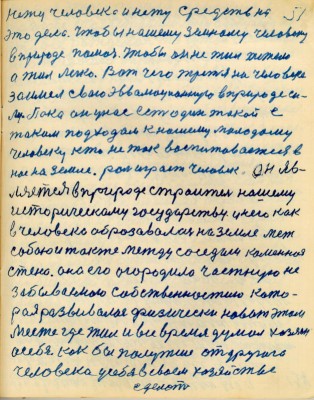 51
нету человека и нету средств на
это дело. Чтобы нашему земному человеку
в природе помоч. Чтобы он не жил тяжело
а жил легко. Вот чего третя на человека
заимел свою эвволюционную в природе си-
лу. Пока он у нас есть один такой с
таким подходам к нашему молодому
человеку кто не так воспитовается в
нас на земле. роли играет человек. Он яв-
ляется в природе строител нашему
историческому государству у него как
в человека оброзавалась на земле меж
собою и также между соседям каменная
стена. она его огородило частную не
забываемою собственностию кото-
рая развивалас физически на вот этом
месте где жил и все время думал хозяин
о себе как бы получше от другого
человека у себя в своем хозяйстве
сделать